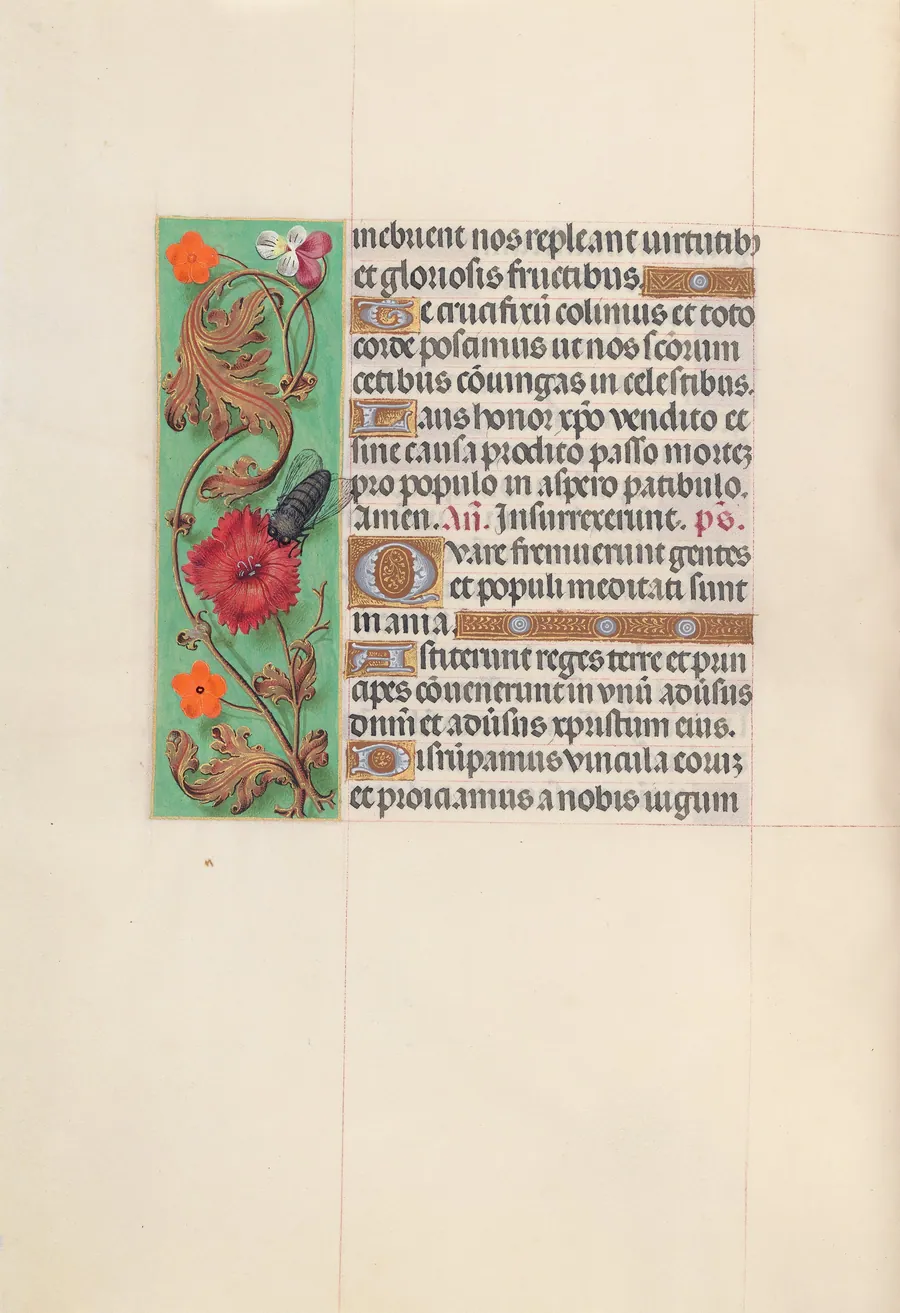 inebrient nos repleant uirtutibꝫ
et gloriosis fructibus.
Te crucifixū colimus et toto
corde poscimus ut nos scōrum
cetibus cōiungas in celestibus.
Laus honor xp̄o vendito et
sine causa prodito passo mortez
pro populo in aspero patibulo.
Amen. An̄. Insurrexerunt. ps̄.
Quare fremuerunt gentes
et populi meditati sunt
inania.
Astiterunt reges terre et prin
cipes cōuenerunt in vnū adūsus
dnm̄ et adūsus xpistum eius.
Disrūpamus vincula eorūz
et proiciamus a nobis iugum